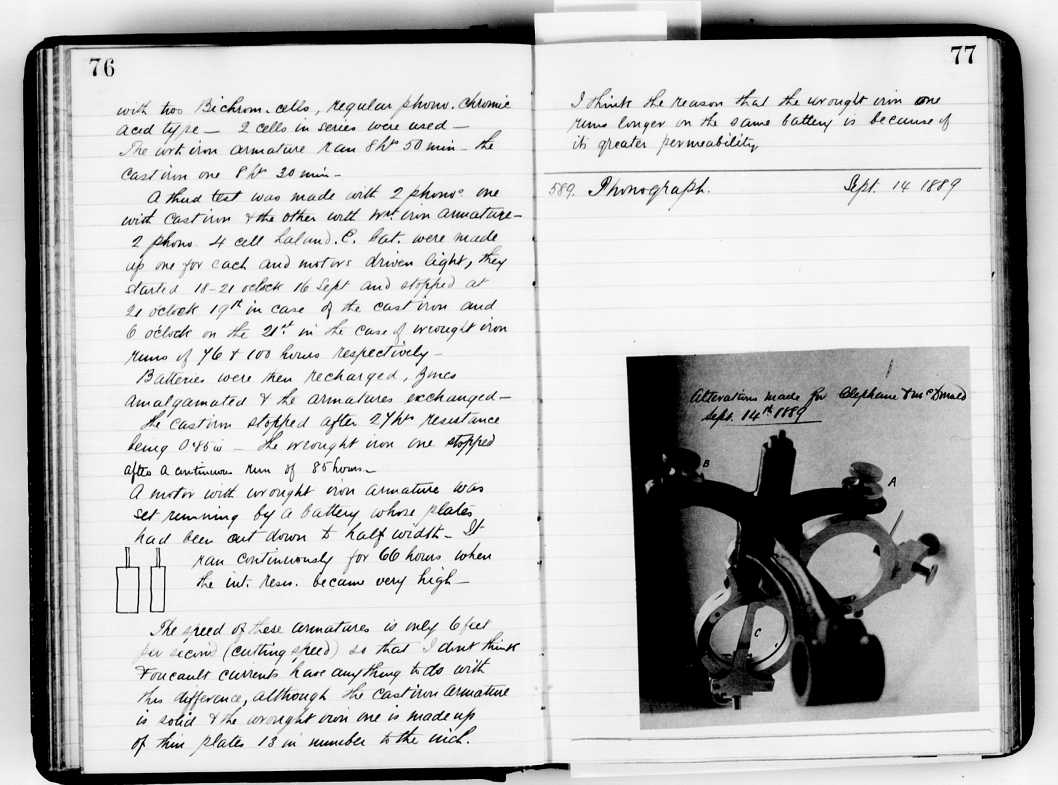 76
with two Bichrom. cells, regular phono. chromic
acid type — 2 cells in series were used —
The wrt iron armature ran 8 hrs 50 min — the
cast iron one 8 hrs 30 min —
A third test was made with 2 phonos one
with cast iron & the other with wrt iron armature —
2 phono. 4 cell Laland. C. bat. were made
up one for each and motors driven light, they
started 18-21 oclock 16 Sept and stopped at
21 oclock 19th in case of the cast iron and
6 oclock on the 21st in the case of wrought iron
runs of 76 & 100 hours respectively —
Batteries were then recharged, zincs
amalgamated & the armatures exchanged —
the cast iron stopped after 27 hrs resistance
being — the wrought iron one stopped
after a continuous run of 85 hours —
A motor with wrought iron armature was
set running by a battery whose plates
had been cut down to half width — It
ran continuously for 66 hours when
the int. resis. became very high —
The speed of these armatures is only 6 feet
per second (cutting speed) so that I dont think
Foucault currents have anything to do with
this difference, although the cast iron armature
is solid & the wrought iron one is made up
of thin plates 13 in number to the inch.
77
I think the reason that the wrought iron one
runs longer on the same battery is because of
its greater permeability
589. Phonograph. Sept. 14 1889
Alterations made for Clephane & McDonald
Sept. 14th 1889
B
A
C